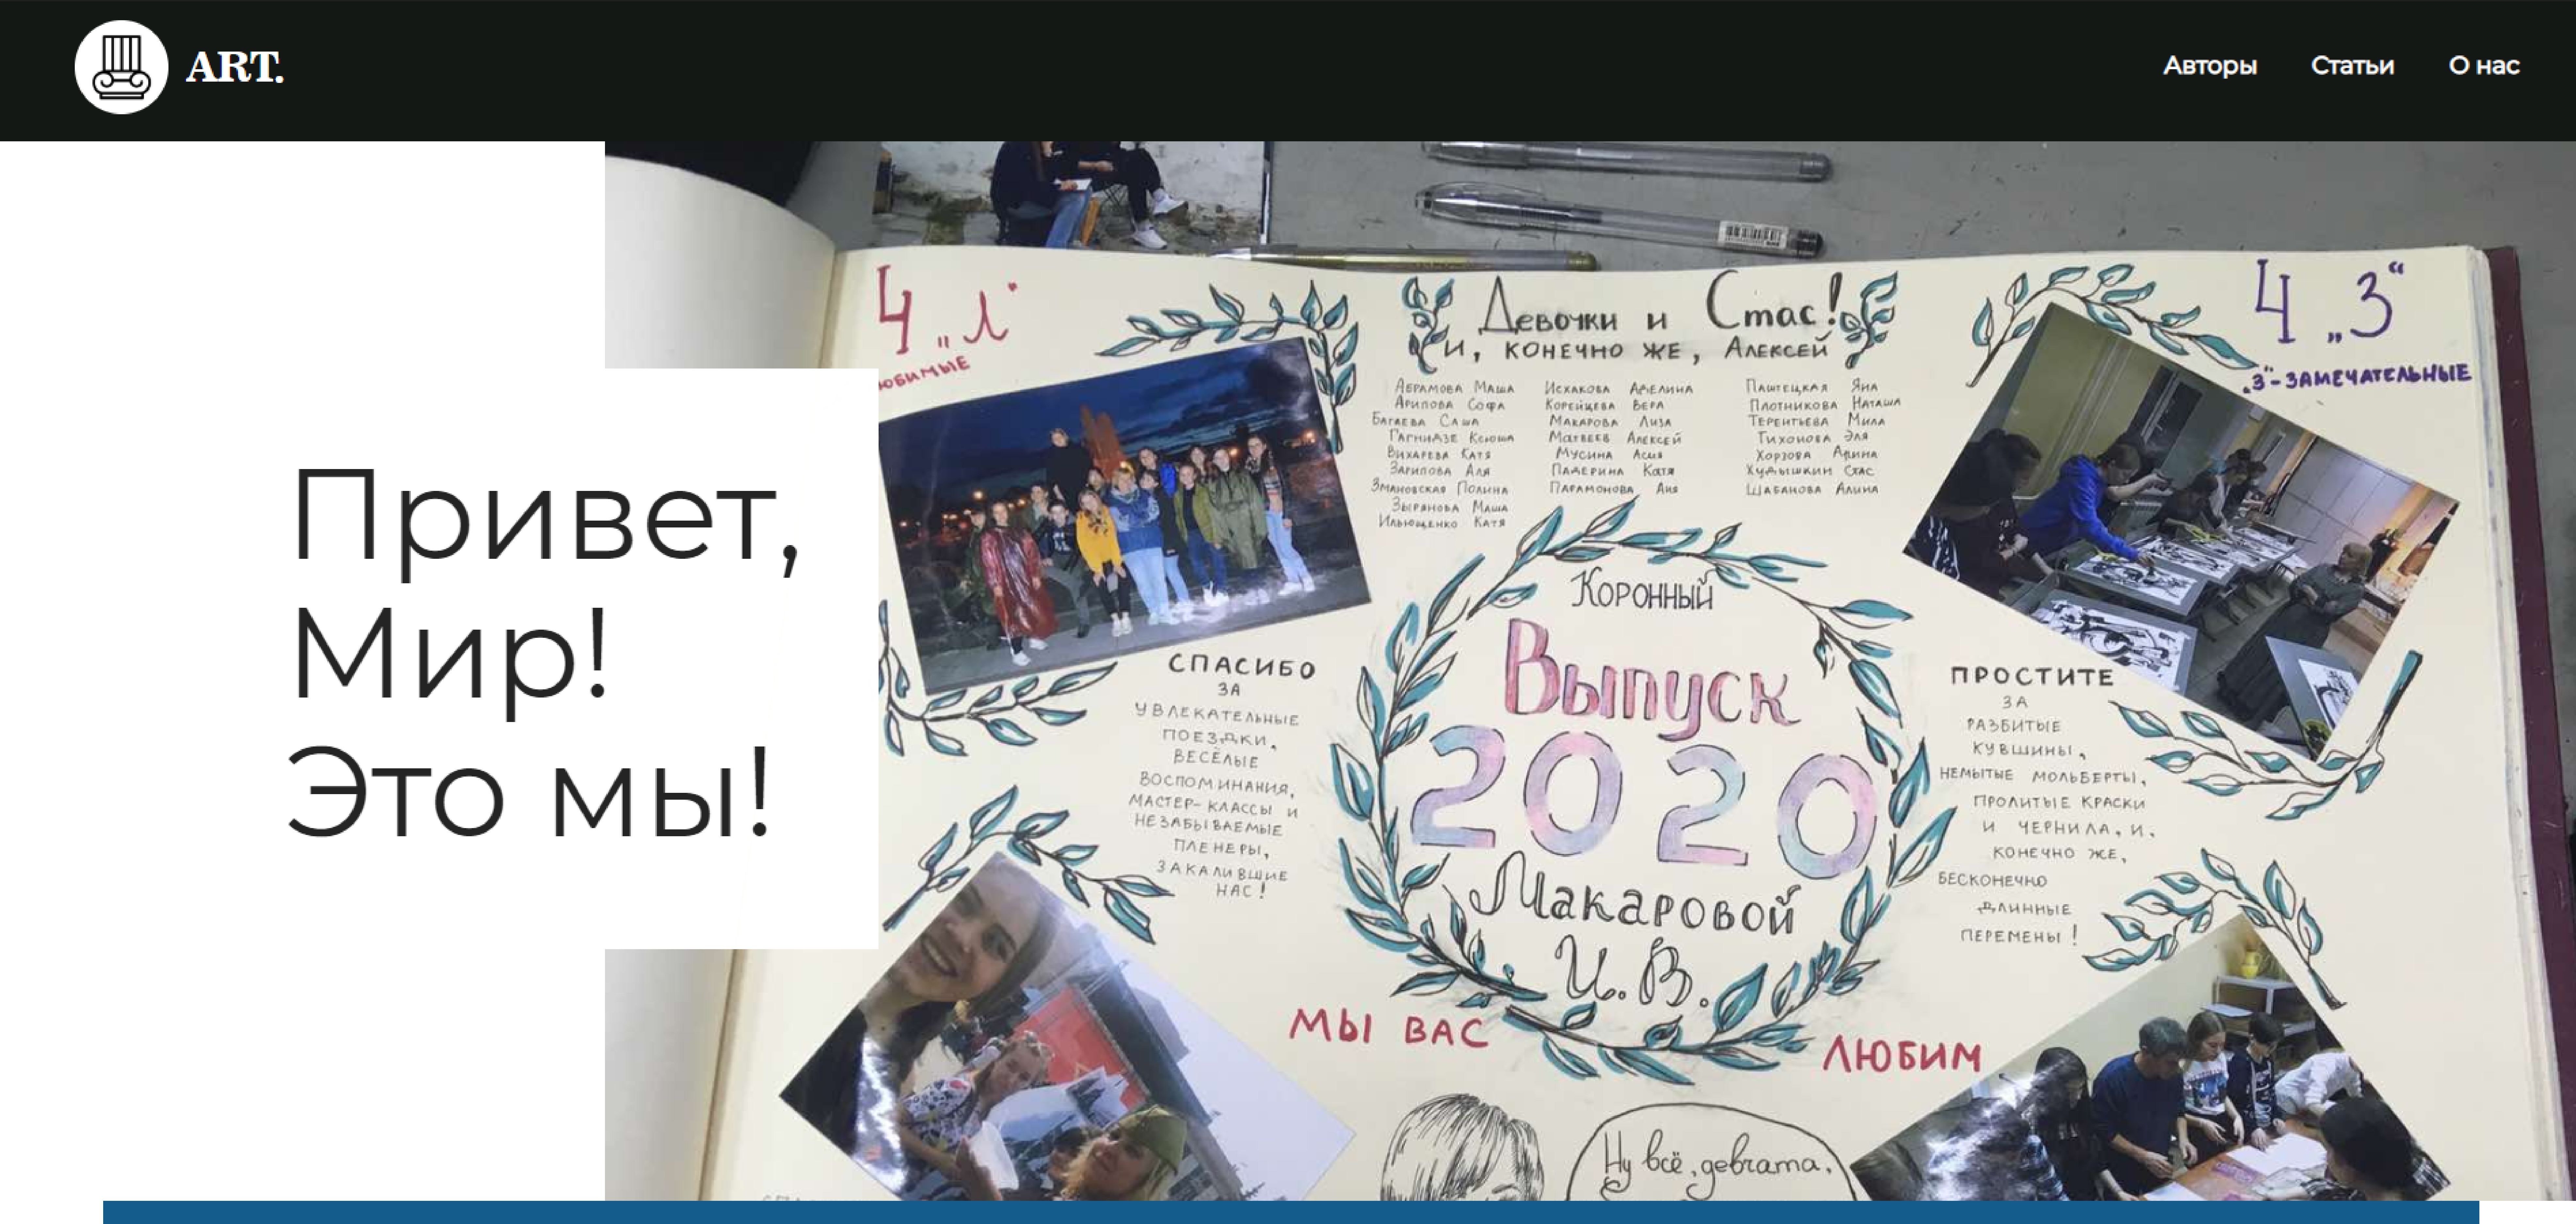 ART.
Авторы
Статьи
О нас
Привет,
Мир!
Это мы!
4 „Л“
юбимые
Девочки и Стас!
и, конечно же, Алексей
Абрамова Маша
Арипова Софа
Багаева Саша
Гагнидзе Ксюша
Вихарева Катя
Зарипова Аля
Змановская Полина
Зырянова Маша
Ильющенко Катя
Исхакова Аделина
Корейцева Вера
Макарова Лиза
Матвеев Алексей
Мусина Асия
Падерина Катя
Парамонова Аня
Паштецкая Яна
Плотникова Наташа
Терентьева Мила
Тихонова Эля
Хорзова Арина
Худышкин Стас
Шабанова Алина
4 „З“
„З“-ЗАМЕЧАТЕЛЬНЫЕ
СПАСИБО
ЗА
УВЛЕКАТЕЛЬНЫЕ
ПОЕЗДКИ,
ВЕСЁЛЫЕ
ВОСПОМИНАНИЯ,
МАСТЕР-КЛАССЫ И
НЕЗАБЫВАЕМЫЕ
ПЛЕНЕРЫ,
ЗАКАЛИВШИЕ
НАС!
Коронный
Выпуск
2020
Макаровой
И.В.
ПРОСТИТЕ
ЗА
РАЗБИТЫЕ
КУВШИНЫ,
НЕМЫТЫЕ МОЛЬБЕРТЫ,
ПРОЛИТЫЕ КРАСКИ
И ЧЕРНИЛА, И,
КОНЕЧНО ЖЕ,
БЕСКОНЕЧНО
ДЛИННЫЕ
ПЕРЕМЕНЫ!
МЫ ВАС
ЛЮБИМ
Ну всё, девчата,